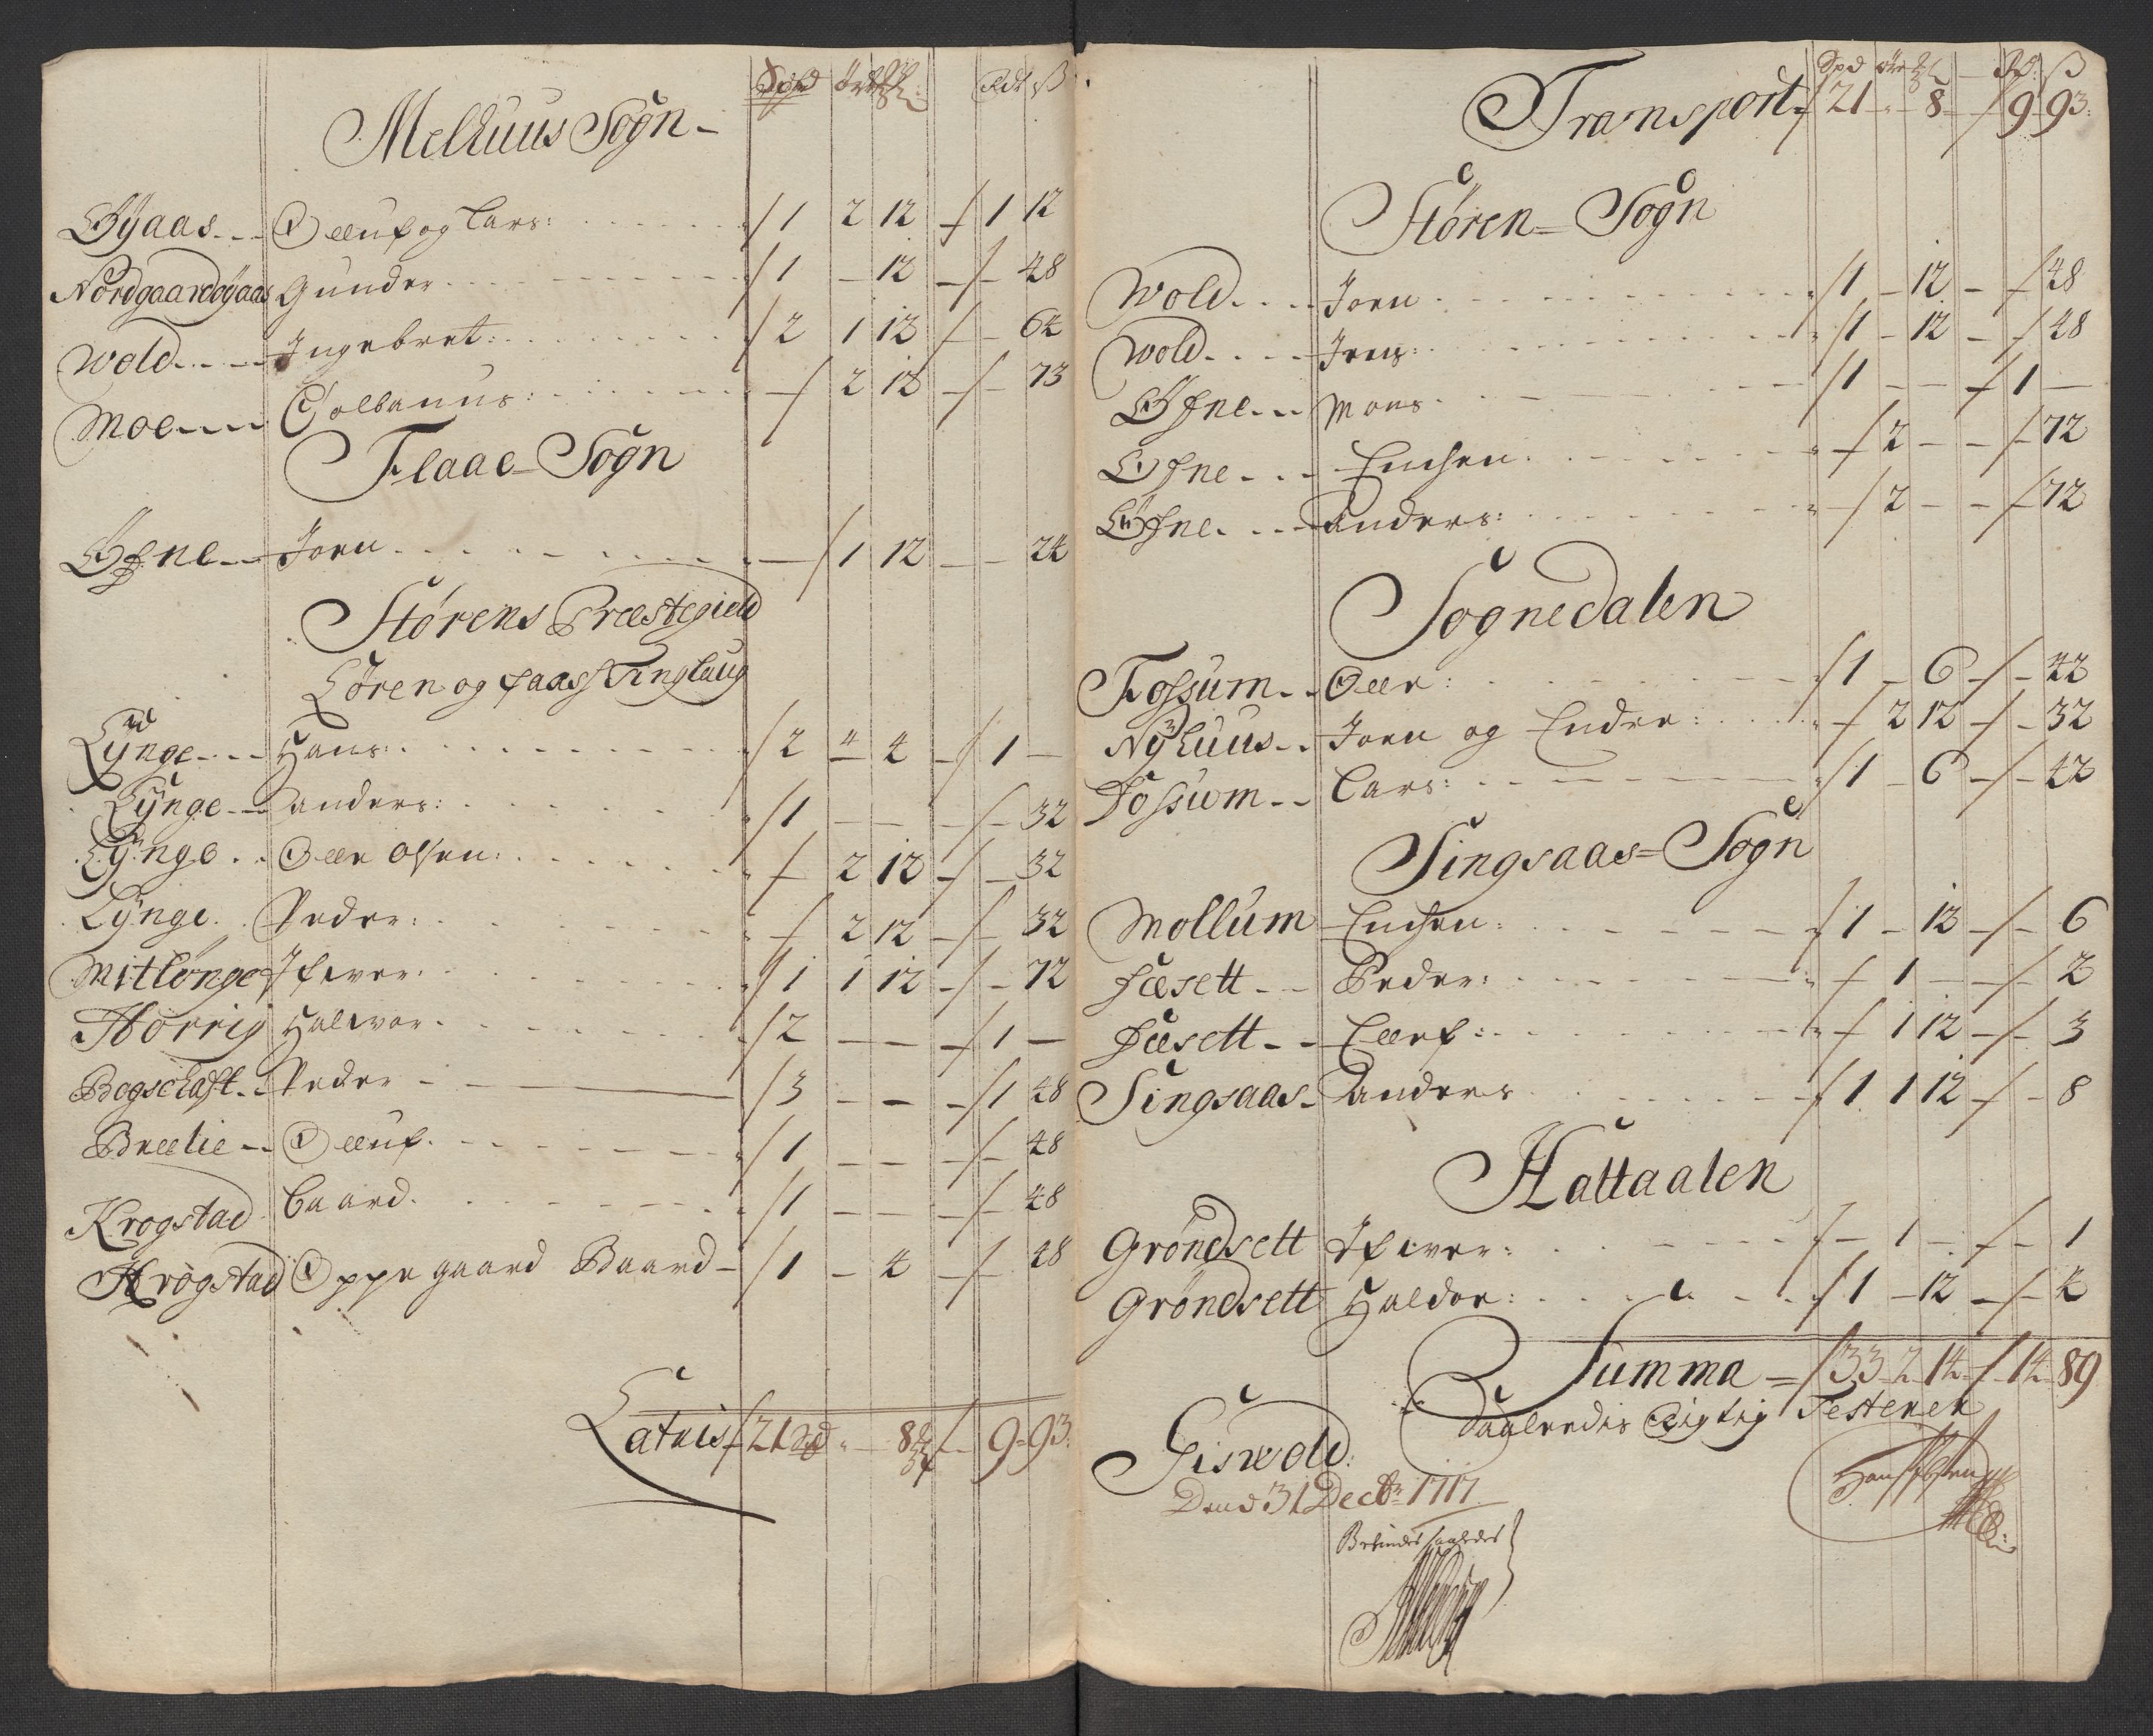 Spd ört ℔ Rdr ß
Melhuus Sogn -
Øÿaas - - Oelluf og Lars: / 1 2 12 - / 1 12
Nordgaardøyaas Gunder / 1 - 12 - / - 48
Wold - - - Ingebret: / 2 1 12 / - 64
Moe - - - Colbanus: - / 2 12 - / - 73
Flaae - Sogn
Øfne - - Joen - / 1 12 - - 24
Störens Præstegield
Sören og Tinglaug
Lÿnge - - - Hans: / 2 " 4 - / 1 -
Lÿnge - - anders: / 1 - - - / - 32
Lÿnge - - Olle Olsen: - / 2 12 - / - 32
Lÿnge - Peder: - / 2 12 - / - 32
Mitlönge Ifwer: / 1 1 12 - / - 72
Horrig Halwor / 2 - - - / 1 -
Peder - / 3 - - - / 1 48
Brælie - - Oelluf / 1 - - - / - 48
Krogstad Baard / 1 - - - / - 48
Krogstad Oppegaard Baard - / 1 - 4 - / - 48
Latus / 21 Spd " - 8 ℔ / - 9 - 93:
Spd ört ℔ - Rd: ß
Transport / 21 - " - 8 - / 9 93:
Stören = Sogn
Wold - - - Joen / 1 - 12 - - / 48
Wold - - - Jens: / 1 - 12 - - / 48
Øfne - - Mons / 1 - - - / 1 -
Øfne - - - Enchen - / 2 - - - / 72
Øfne - - - anders: - / 2 - - - / 72
Sognedalen
Fossum - - Olle: / 1 - 6 - / - 42
Nÿhuus - - Joen og Endre: - / 2 12 - / - 32
Fossum - - Lars: / 1 - 6 - / - 42
Singsaas = Sogn
Mollum Enchen: / 1 - 12 - / - 6
Fæsett - - Peder: - / 1 - - / - 2
Fæsett - - Ellef: - / 1 12 - / - 3
Singsaas - anders / 1 1 12 - / - 8
Haltaalen
Gröndsett Ifwer: / - 1 - - / - 1
Gröndsett Haldor: / 1 - 12 - / - 4
Summa = / 33 - 2 - 14 - / - 14 - 89
Saaledis Rigtig Testerer
Giswold:
Dend 31 Decbr: 1717
Befindes saaledes